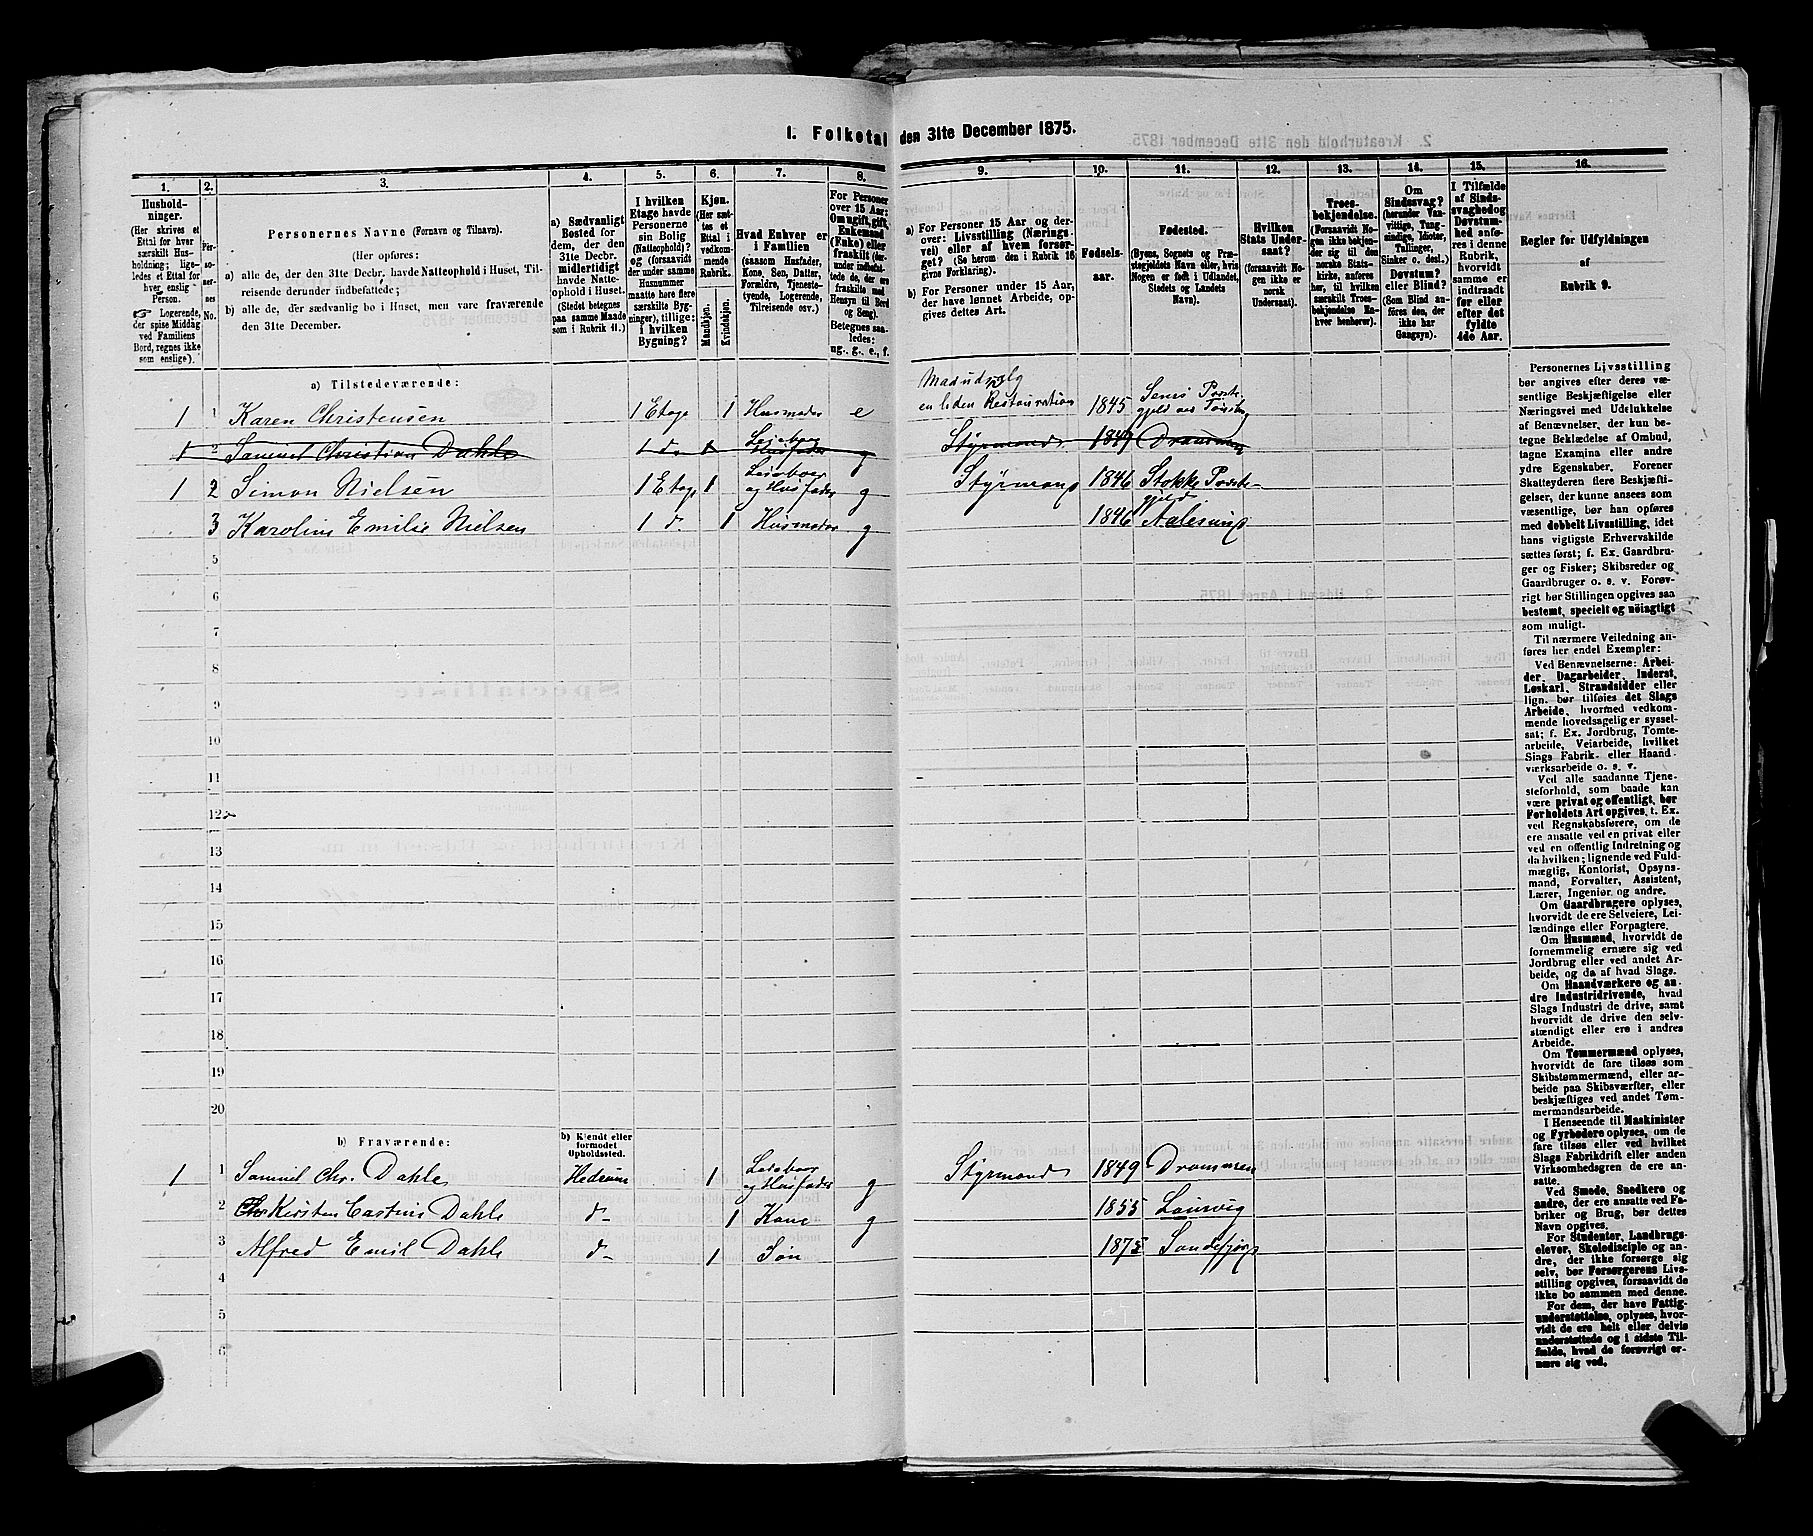 1. Folketal den 31te December 1875.
1.
Hushold-
ninger.
(Her skrives et
Ettal for hver
særskilt Hus-
holdning; lige-
ledes et Ettal for
hver enslig
Person.
☞ Logerende,
der spise Middag
ved Familiens
Bord, regnes ikke
som enslige).
2.
Per-
so-
ner-
nes
No.
3.
Personernes Navne (Fornavn og Tilnavn).
(Her opføres:
a) alle de, der den 31te Decbr. havde Natteophold i Huset, Til-
reisende derunder indbefattede;
b) alle de, der sædvanlig bo i Huset, men vare fraværende
den 31te December.
4.
a) Sædvanligt
Bosted for
dem, der den
31te Decbr.
midlertidigt
havde Natte-
ophold i Huset.
(Stedet betegnes
paa samme Maade
som i Rubrik 11.)
5.
I hvilken
Etage havde
Personerne
sin Bolig
(Natteophold)?
og (forsaavidt
der under samme
Husnummer
maatte høre flere
særskilte Byg-
ninger), tillige:
i hvilken
Bygning?
6.
Kjøn.
(Her sæt-
tes et
Ettal i
vedkom-
mende
Rubrik.
Mandkjøn.
Kvindekjøn.
7.
Hvad Enhver er
i Familien
(saasom Husfader,
Kone, Søn, Datter,
Forældre, Tjeneste-
tyende, Logerende,
Tilreisende osv.)
8.
For Personer
over 15 Aar:
Om ugift, gift,
Enkemand
(Enke) eller
fraskilt
Hensyn til Bord
og Seng).
Betegnes saa-
ledes:
ug., g., e., f.
9.
a) For Personer 15 Aar og der-
over: Livsstilling (Nærings-
vei) eller af hvem forsør-
get? (Se herom den i Rubrik 16
givne Forklaring).
b) For Personer under 15 Aar,
der have lønnet Arbeide, op-
gives dettes Art.
10.
Fødsels-
aar.
11.
Fødested.
(Byens, Sognets og Præ-
stegjeldets Navn eller, hvis
Nogen er født i Udlandet,
Stedets og Landets
Navn).
12.
Hvilken
Stats Under-
saat?
(forsaavidt No-
gen ikke er
norsk
Undersaat).
13.
Troes-
bekjendelse.
(Forsaavidt No-
gen ikke bekjen-
der sig til den
norske Stats-
kirke, anføres
her, til hvilken
særskilt Troes-
bekjendelse En-
hver henhører).
14.
Om
Sindssvag?
(herunder Van-
vittige, Tung-
sindige, Idioter,
Tullinger,
Sinker o. desl.)
Døvstum?
eller Blind?
(Som Blind an-
føres den, der
ikke har
Gangsyn).
15.
I Tilfælde
af Sinds-
svaghed og
Døvstum-
hed anfø-
res i denne
Rubrik,
hvorvidt
samme er
indtraadt
før eller
efter det
fyldte
4de Aar.
16.
Regler for Udfyldningen
af
Rubrik 9.
a) Tilstedeværende:
Madudsalg
1 1 Karen Christensen 1 Etage 1 Husmoder e en liden Restauration 1845 Sems Præste-
gjeld ved Tønsberg
1 2 Samuel Christian Dahle 1 d. 1 Leieboer Husfader g Styrmand 1849 Drammen
1 2 Simon Nielsen 1 Etage 1 Leieboer og Husfader g Styrmand 1846 Stokke Præste-
gjeld
3 Karoline Emilie Nielsen 1 d. 1 Husmoder g 1846 Aalesund
5
6
7
8
9
10
11
12
13
14
15
16
17
18
19
20
b) Fraværende:
b) Kjendt eller
formodet
Opholdssted.
1 1 Samuel Chr. Dahle Hedrum 1 Leieboer og Husfader g Styrmand 1849 Drammen
2 Kirsten Dahle d- 1 Kone g 1855 Laurvig
3 Alfred Emil Dahle d- 1 Søn 1875 Sandefjord
4
5
6
Personernes Livsstilling
bør angives efter deres væ-
sentlige Beskjæftigelse eller
Næringsvei med Udelukkelse
af Benævnelser, der kun be-
tegne Beklædelse af Ombud,
tagne Examina eller andre
ydre Egenskaber. Forener
Skatteyderen flere Beskjæfti-
gelser, der kunne ansees som
væsentlige, bør han opføres
med dobbelt Livsstilling, idet
hans vigtigste Erhvervskilde
sættes først; f. Ex. Gaardbru-
ger og Fisker; Skibsreder og
Gaardbruger o. s. v. Forøv-
rigt bør Stillingen opgives saa
bestemt, specielt og nøiagtigt
som muligt.
Til nærmere Veiledning an-
føres her endel Exempler:
Ved Benævnelserne: Arbei-
der, Dagarbeider, Inderst,
Løskarl, Strandsidder eller
lign. bør tilføies det Slags
Arbeide, hvormed vedkom-
mende hovedsagelig er syssel-
sat; f. Ex. Jordbrug, Tomte-
arbeide, Veiarbeide, hvilket
Slags Fabrik- eller Haand-
værksarbeide o. s. v.
Ved alle saadanne Tjene-
steforhold, som baade kan
være privat og offentligt, bør
Forholdets Art opgives, t. Ex.
ved Regnskabsførere, om de
ere ansatte ved en privat eller
ved en offentlig Indretning og
da hvilken; lignende ved Fuld-
mægtig, Kontorist, Opsyns-
mand, Forvalter, Assistent,
Lærer, Ingeniør og andre.
Om Gaardbrugere oplyses,
hvorvidt de ere Selveiere, Lei-
lændinge eller Forpagtere.
Om Husmænd, hvorvidt de
fornemmelig ernære sig ved
Jordbrug eller ved andet Ar-
beide, og da af hvad Slags.
Om Haandværkere og an-
dre Industridrivende, hvad
Slags Industri de drive, samt
hvorvidt de drive den selv-
stændigt eller ere i andres
Arbeide.
Om Tømmermænd oplyses,
hvorvidt de fare tilsøs som
Skibstømmermænd, eller ar-
beide paa Skibsværfter, eller
beskjæftiges ved andet Tøm-
mermandsarbeide.
I Henseende til Maskinister
og Fyrbødere oplyses, om de
fare tilsøs eller ved hvilket
Slags Fabrikdrift eller anden
Virksomhedsgren de ere an-
satte.
Ved Smede, Snedkere og
andre, der ere ansatte ved Fa-
briker og Brug, bør dettes
Navn opgives.
For Studenter, Landbrugs-
elever, Skoledisciple og an-
dre, der ikke forsørge sig
selv, bør Forsørgerens Livs-
stilling opgives, forsaavidt de
ikke bo sammen med denne.
For dem, der have Fattig-
understøttelse, oplyses, hvor-
vidt de ere helt eller delvis
understøttede og i sidste Til-
fælde, hvad de forøvrigt er-
nære sig ved.